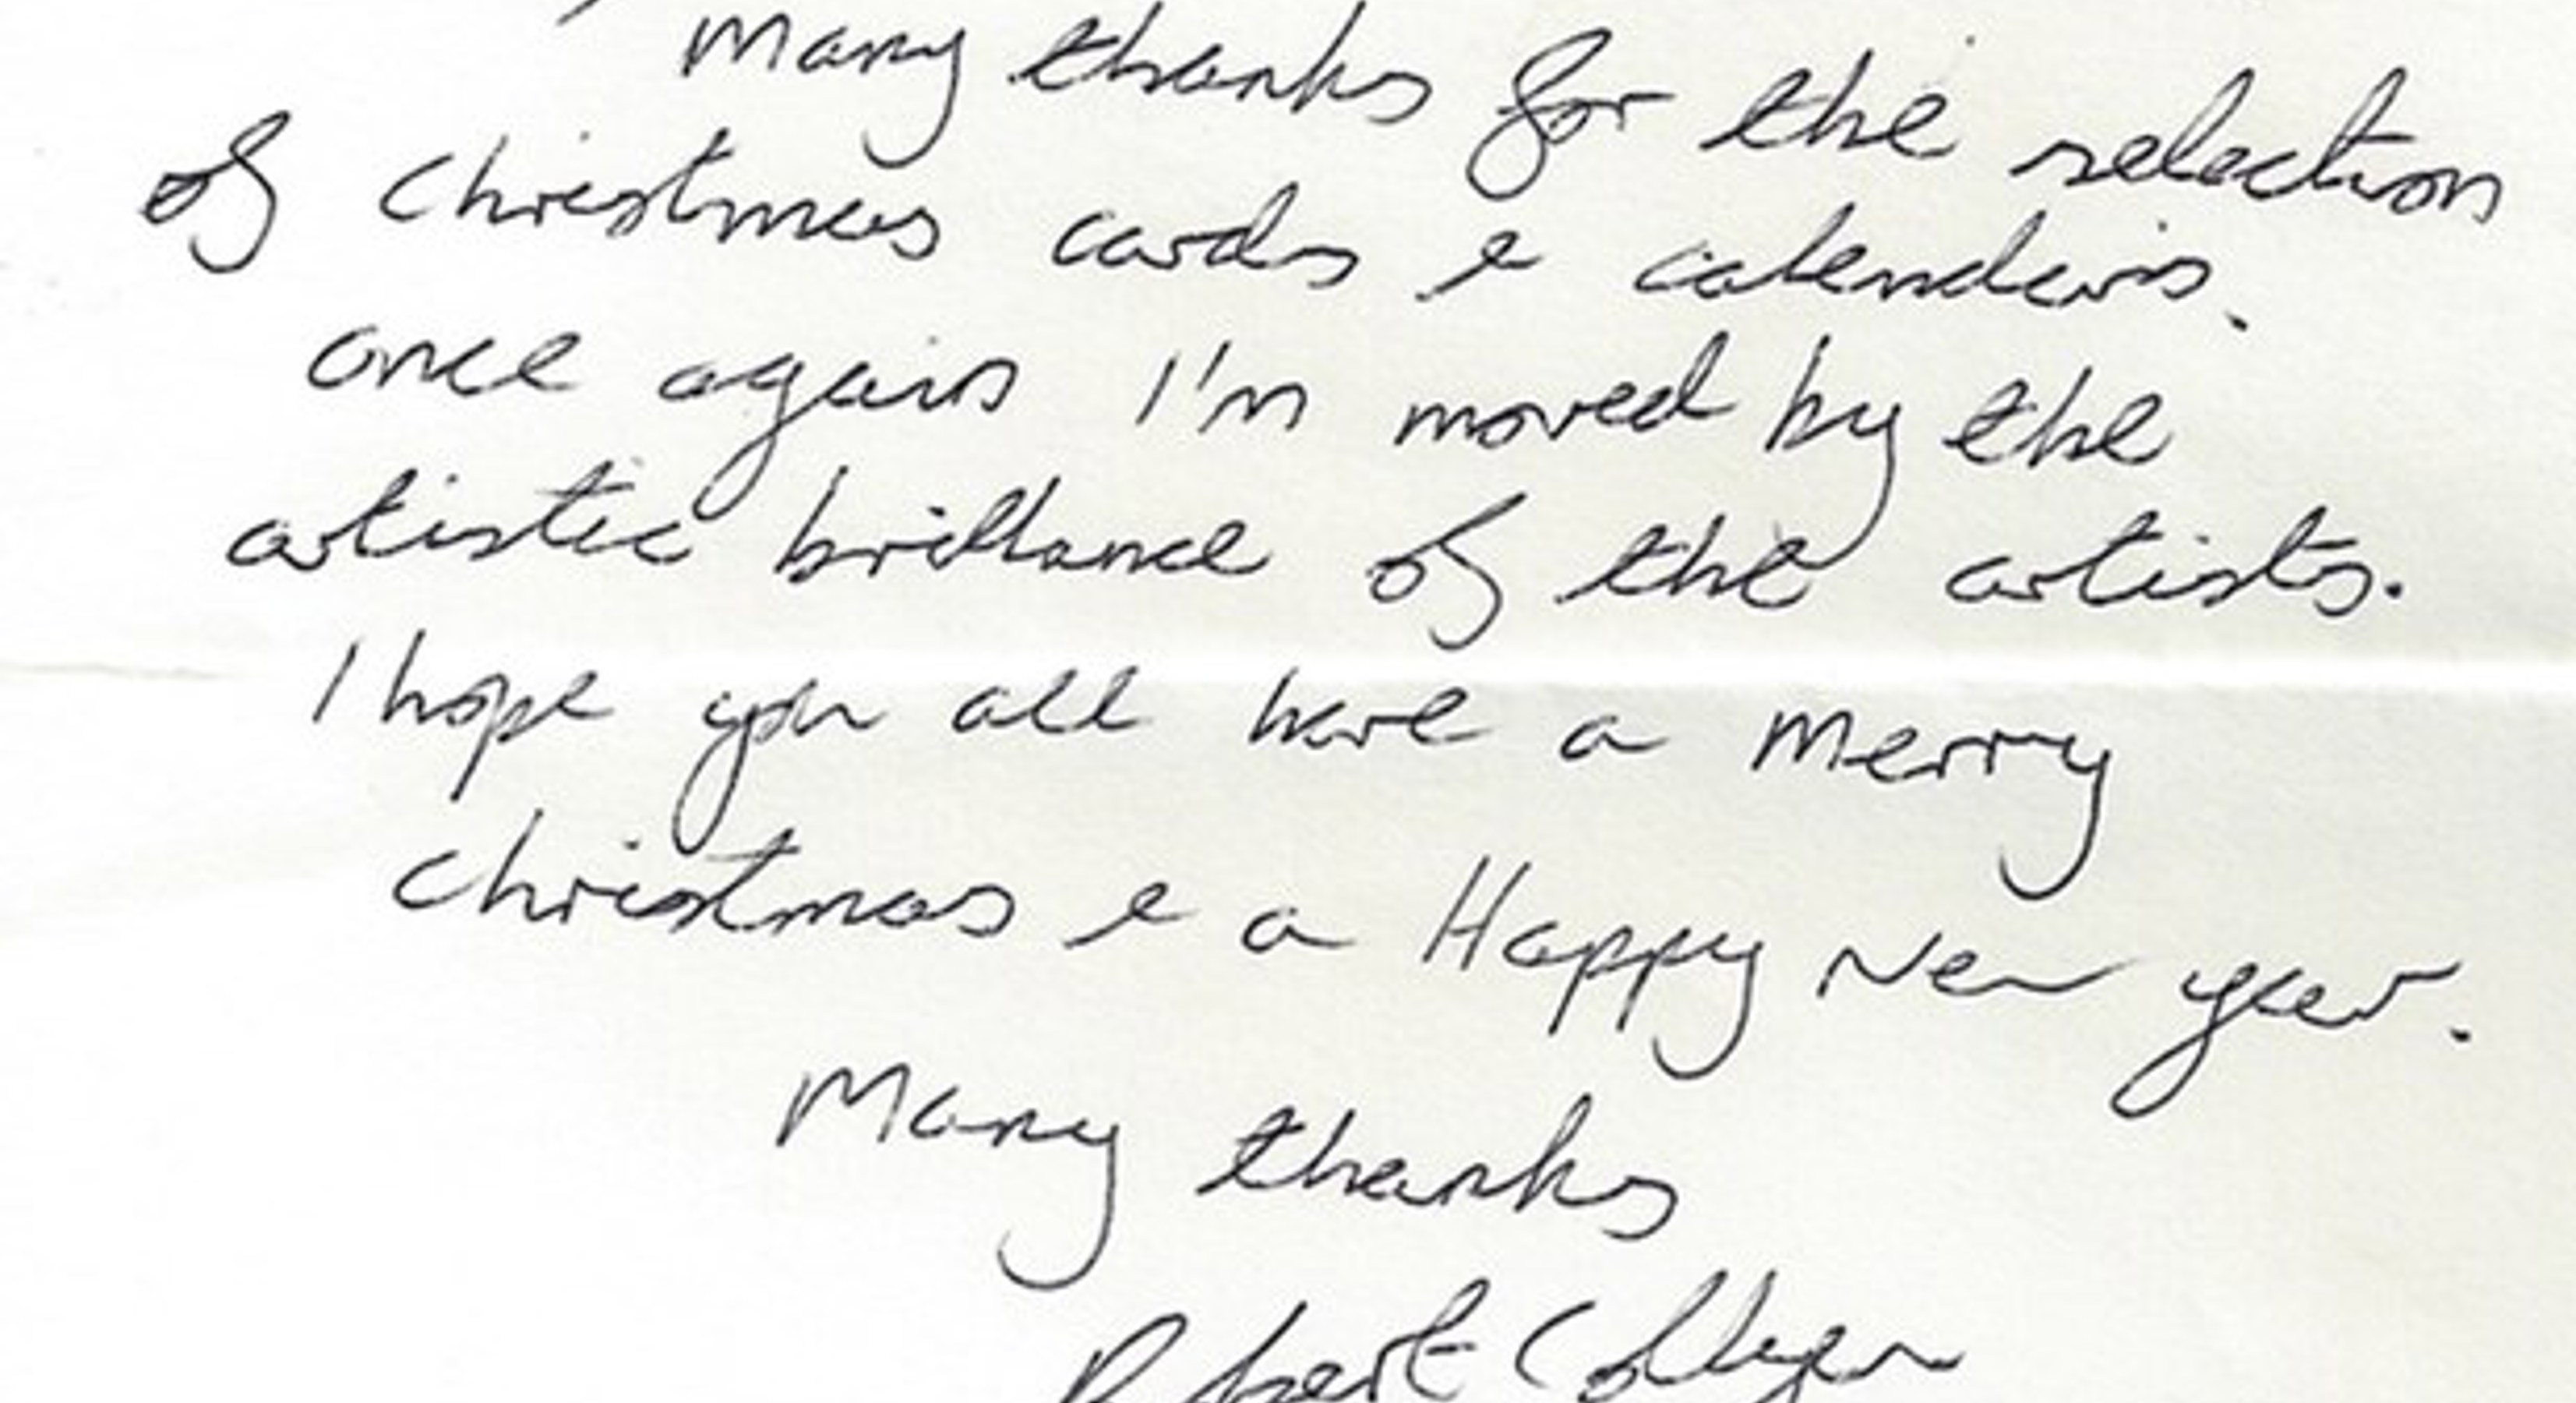 Many thanks for the selection
of Christmas cards & calenders.
once again I'm moved by the
artistic brillance of the artists.
I hope you all have a Merry
Christmas & a Happy New year.
Many thanks
Robert